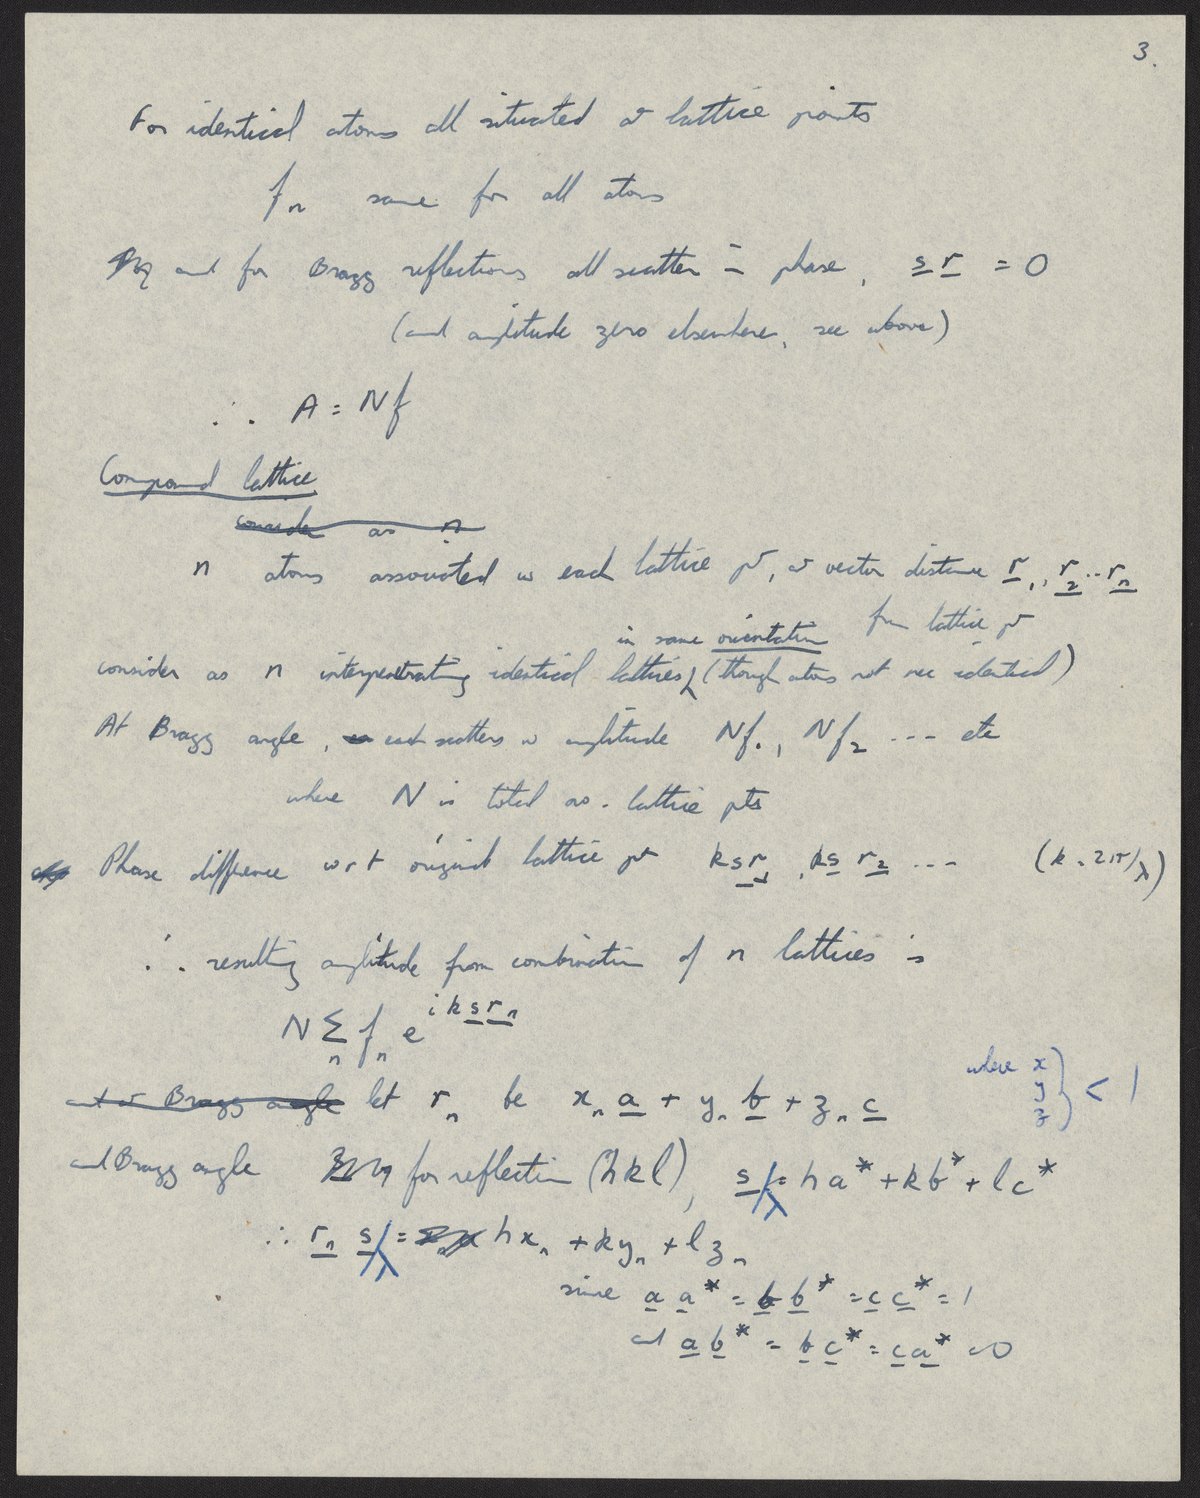 3.
For identical atoms all situated at lattice points
fn same for all atoms
and for Bragg reflections all scatter in phase, s r = 0
(and amplitude zero elsewhere, see above)
∴ A = Nf
Compound lattice
consider as n
n atoms associated w each lattice pt, at vector distance r1, r2 .. rn
from lattice pt
in same orientation
consider as n interpenetrating identical lattices (though atoms not nec identical)
At Bragg angle, each scatters w amplitude Nf1, Nf2 --- etc
where N is total no. lattice pts
Phase difference wrt original lattice pt k s r1, k s r2 --- (k = 2π/λ)
∴ resulting amplitude from combination of n lattices is
N Σn fn e^{i k s rn}
where x y z } < 1
and at Bragg angle let rn be xn a + yn b + zn c
and Bragg angle for reflection (hkl), s/λ = ha* + kb* + lc*
∴ rn s/λ = hxn + kyn + lzn
since a a* = b b* = c c* = 1
and a b* = b c* = c a* = 0